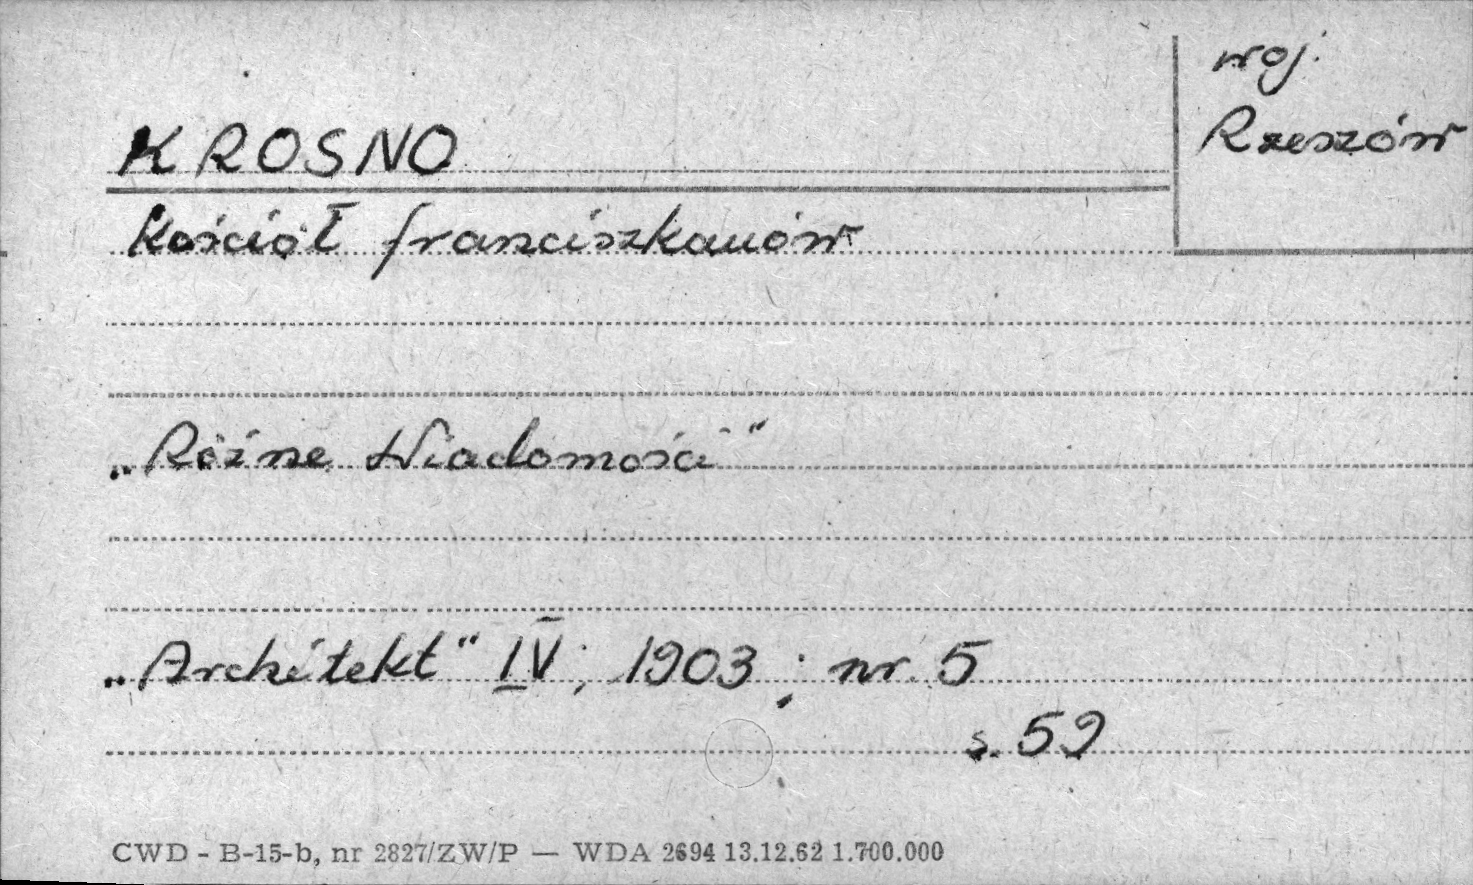 woj.
Rzeszów
KROSNO
Kościół franciszkanów
„Różne Wiadomości"
„Architekt" IV, 1903; nr. 5
s. 59
CWD - B-15-b, nr 2827/ZW/P — WDA 2694 13.12.62 1.700.000